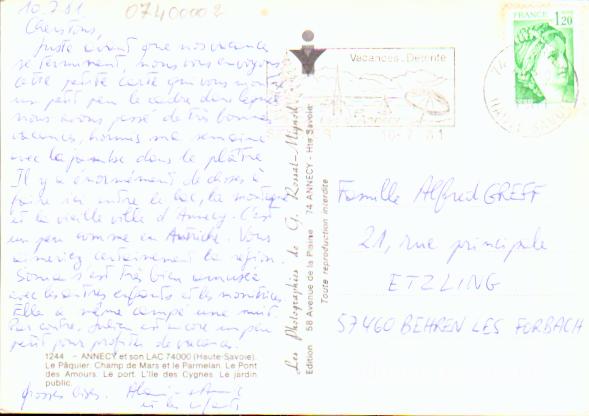 10.7.81
07400002
Chers tous,
Juste avant que nos vacances
se terminent, nous vous envoyons
cette petite carte qui vous montre
un petit peu le cadre dans lequel
nous avons passé de très bonnes
vacances, hormis ma semaine
avec la jambe dans le plâtre
Il y a énormément de choses à
faire ici entre le lac, la montagne
et la vieille ville d'Annecy. C'est
un peu comme en Autriche. Vous
aimeriez certainement la région.
s'est très bien amusée
avec les autres enfants et les monitrices.
Elle a même campé une nuit
Par contre, est encore un peu
petit pour profiter de vacances.
1244 - ANNECY et son LAC 74000 (Haute-Savoie).
Le Pâquier. Champ de Mars et le Parmelan. Le Pont
des Amours. Le port. L'Ile des Cygnes. Le jardin
public.
Grosses bises.
et les enfants
Les Photographies de G. Rossat-Mignod
Edition 58 Avenue de la Plaine 74 ANNECY - Hte Savoie
Toute reproduction interdite
Vacances. Détente
10-7-81
FRANCE
1,20
Famille Alfred GREFF
21, rue principale
ETZLING
57460 BEHREN LES FORBACH